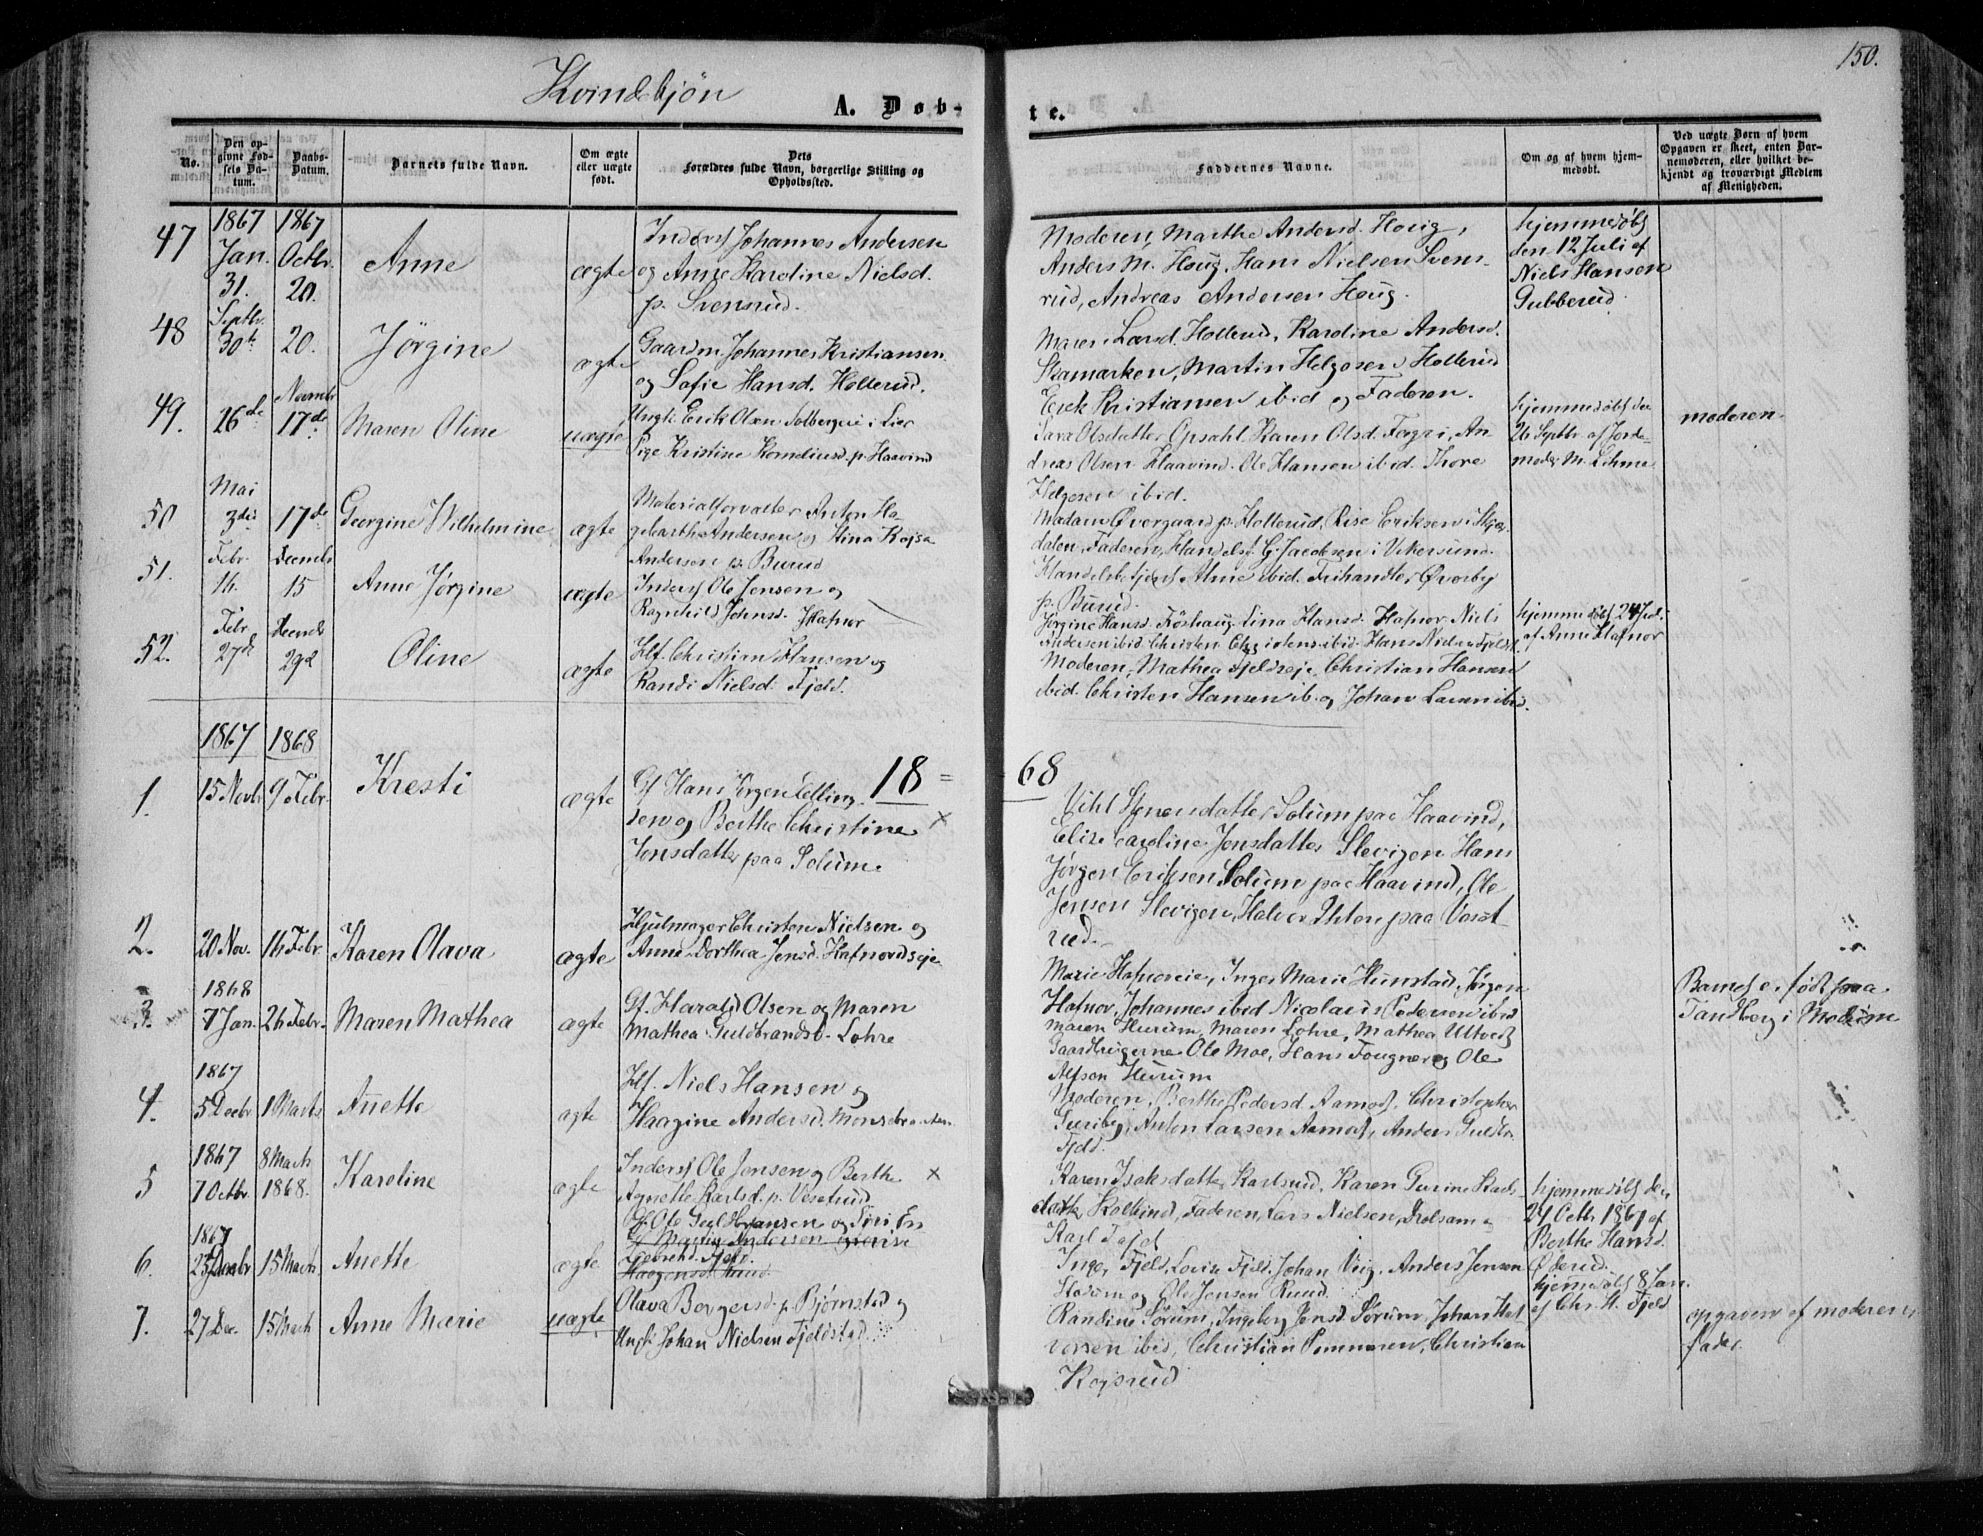 150.
Kvindekjön
A. Døb-
te.
No.
Den op-
givne Fød-
sels Da-
tum.
Daabs-
Datum.
Barnets fulde Navn.
Om ægte
eller uægte
født.
Dets
Forældres fulde Navn, borgerlige Stilling og
Opholdssted.
Faddernes Navne.
Om og af hvem hjem-
medøbt.
Ved uægte Børn af hvem
Opgaven er skeet, enten Bar-
nemoderen, eller hvilket be-
kjendt og troværdigt Medlem
af Menigheden.
47
1867
Jan.
31.
1867
Octbr.
20.
Anne
ægte
Inderst Johannes Andersen
og Anne Karoline Nielsd.
p. Svensrud.
Moderen, Marthe Andersd. Hovig,
Anders M. Houg, Hans Nielsen Svens-
rud, Andreas Andersen Houg.
hjemmedøbt
den 12 Juli af
Niels Hansen
Gubberud.
48
Septbr.
30te
20.
Jørgine
ægte
Gaardm. Johannes Kristiansen
og Sofie Hansd. Hollerud.
Maren Larsd. Hollerud, Karoline Andersd.
Skamarken, Martin Helgesen Hollerud
Erick Kristiansen ibid og Faderen.
49.
26de
Novembr
17de
Maren Oline
uægte
Ungk. Erik Olsen Solbergeie i Lier
Pige Kristine Korneliusd. p. Haavind
Sara Olsdatter Opsahl, Karen Olsd. , An-
dreas Olsen Haavind. Ole Hansen ibid. Thore
Helgesen ibid.
hjemmedøbt den
26 Septbr. af Jorde-
moder M. Lehme
moderen.
50
Mai
3die
17de
Georgine Wilhelmine
ægte
Materialforvalter Anton Ha-
gebarth Andersen og Stina Kajsa
Andersen p. Burud
Madam Øvergaard p. Hollerud, Lise Eriksen i
dalen, Faderen, Handelsf. G. Jacobsen i Vikersund.
Handelsbetjent Alme ibid. Frihandler Øverby
p. Burud.
51.
Febr.
16.
Decembr
15
Anne Jørgine
ægte
Inderst Ole Jensen og
Ragnhild Johnsd. Hafnor
Jørgine Hansd. , Lina Hansd. Hafnor, Niels
Andersen ibid. Christen ibid. Hans Nielsen
hjemmedøbt 24 Juli
af Anne Hafnor
52.
Febr
27de
Decembr
29d
Oline
ægte
Hf. Christian Hansen og
Randi Nielsd. Fjeld.
Moderen, Mathea Fjeldseje, Christian Hansen
ibid. Christen Hansen ib. og Johan Larsen ibid.
1867
1868
18 = 68
1.
15 Novbr
9 Febr.
Kresti
ægte
Gf. Hans Jørgen Elling
sen og Berthe Christine
Jonsdatter paa Solum.
x
Steneersdatter Solum paa Haavind,
Elise Caroline Jensdatter Slevigen Hans
Jørgen Eriksen Solum paa Haavind, Ole
Jensen Slevigen, Halvor paa Vasst
rud.
2.
20 Nov.
16 Febr.
Karen Olava
ægte
Hjulmager Christen Nielsen og
Anne Dorthea Jensd. Hafnordseje
Marie Hafnoreie, Inger Marie Hunstad, Jørgen
Hafnor, Johannes ibid Nicolai Pedersen ibid
3.
1868
7 Jan.
26 Febr.
Maren Mathea
ægte
Gf. Harald Olsen og Maren
Mathea Guldbrandsd. Lohre
Maren Hurum, Maren Lohre, Mathea Ultvedt
Gaardbrugerne Ole Moe, Hans Fougner og Ole
Alfson Hurum
Barnet er født paa
Tandberg i Modum
4.
1867
5 Decbr
1 Marts
Anette
ægte
Hf. Niels Hansen og
Haagine Andersd.
Moderen, Berthe Pedersd. Aamodt, Christopher
Anton Larsen Aamodt, Anders
Fjeld.
5
1867
7 Octbr.
8 Marts
1868.
Karoline
ægte
Inderst Ole Jensen og Berthe
Agnethe Karlsd. p. Vestrud
x
Karen Isaksdatter Karlsrud, Karen Gurine Karls-
datter Kollind, Faderen, Lars Nielsen,
Karl
hjemmedøbt den
21 Octbr 1867 af
Berthe Hansd.
Øderud.
6.
1867
25 Decbr
15 Marts
Anette
ægte
Gf. Ole Guldbransen og Siri En
Gf. Martin Andersen
gebrehd. Fjeld.
Haagensd. Ruud
Inger Fjeld, Lovise Fjeld. Johan Viig. Anders Jensen
Ole Jensen Ruud.
hjemmedøbt 8 Jan.
af Chr. H. Fjeld
7.
27 Dec.
15 Marts
Anne Marie
uægte
Olava Borgersd. p. Bjørnstad og
Ungk. Johan Nielsen Fjeldstad.
Randine Sørum, Ingeborg Jensd. Sørum, Johan Hal
vorsen ibid, Christian Pommeren, Christian
Kopsrud
opgaven af moderens
fader